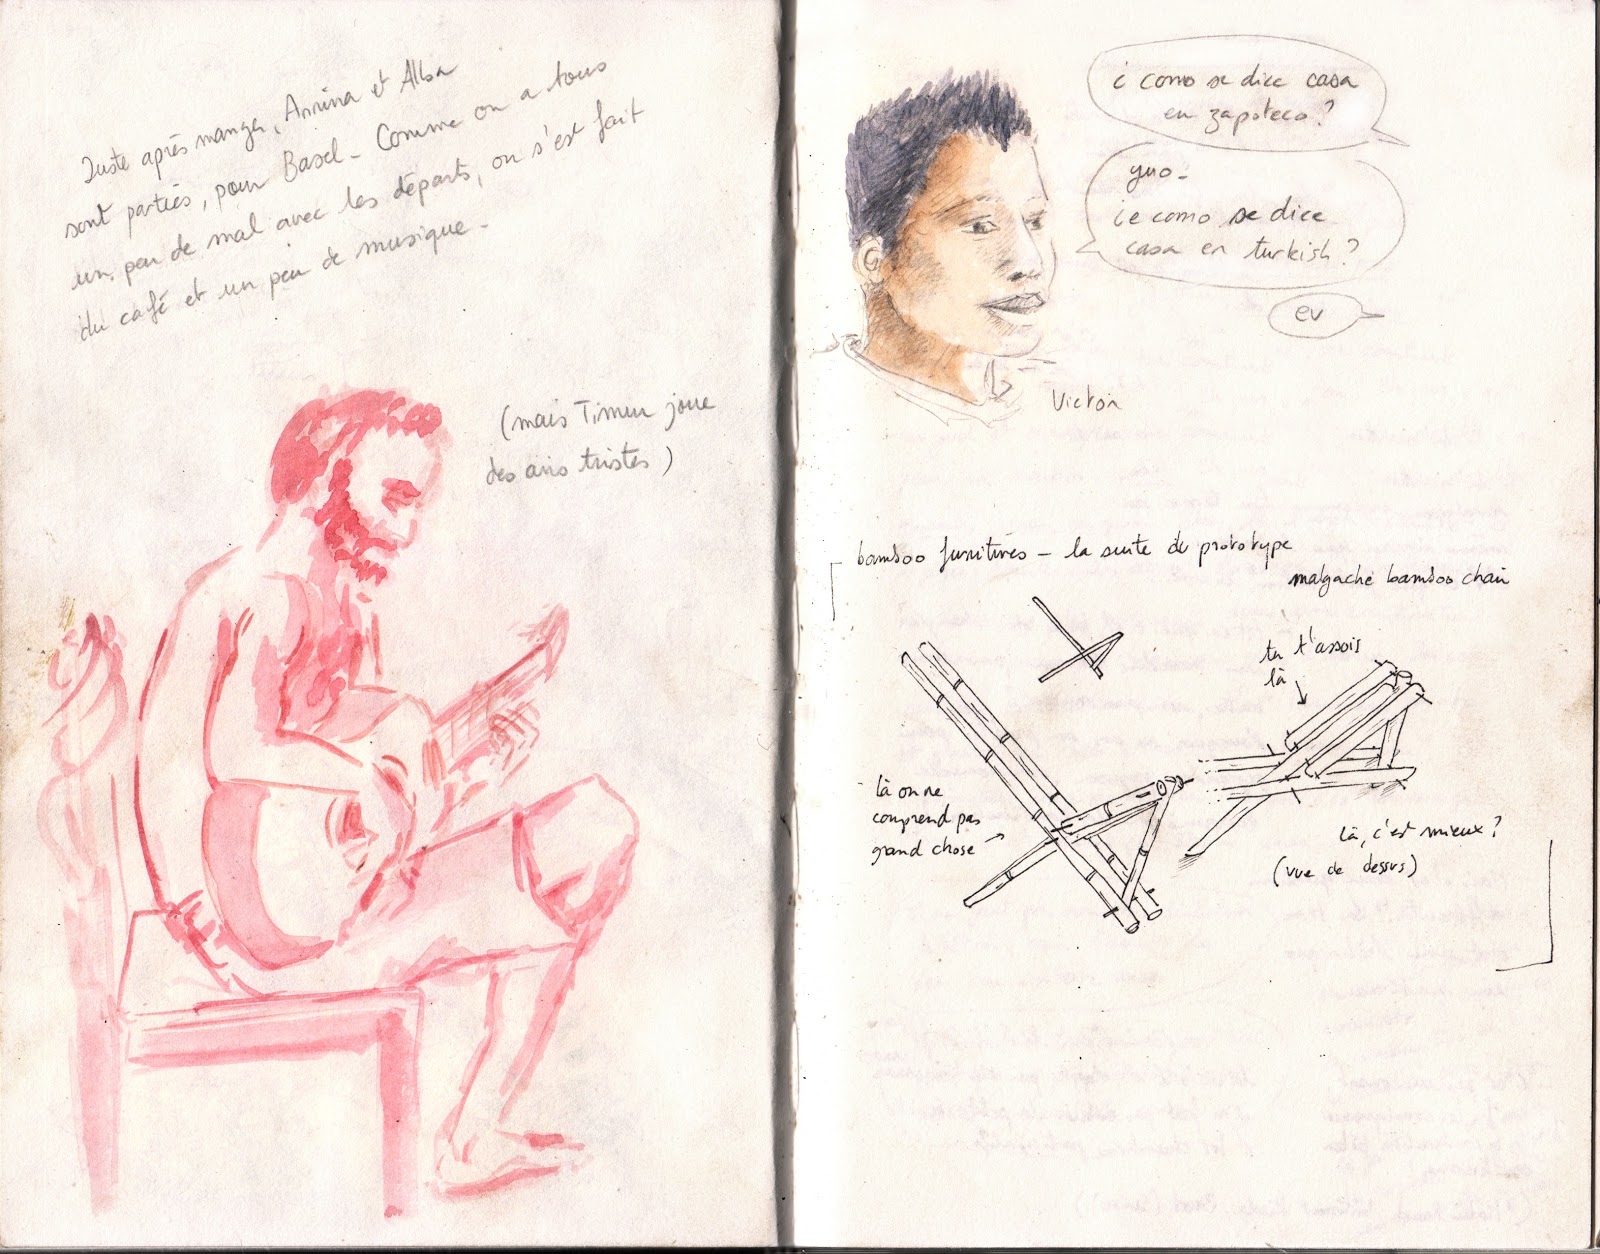 Juste après manger, Annina et Alba
sont parties, pour Basel - Comme on a tous
un peu de mal avec les départs, on s'est fait
du café et un peu de musique -
(mais Timur joue
des airs tristes)
¿ como se dice casa
en zapoteco ?
yuo -
¿ e como se dice
casa en turkish ?
ev
Victor
bamboo furnitures - la suite du prototype
malgache bamboo chair
tu t'assois
là
là on ne
comprend pas
grand chose
là, c'est mieux ?
(vue de dessus)